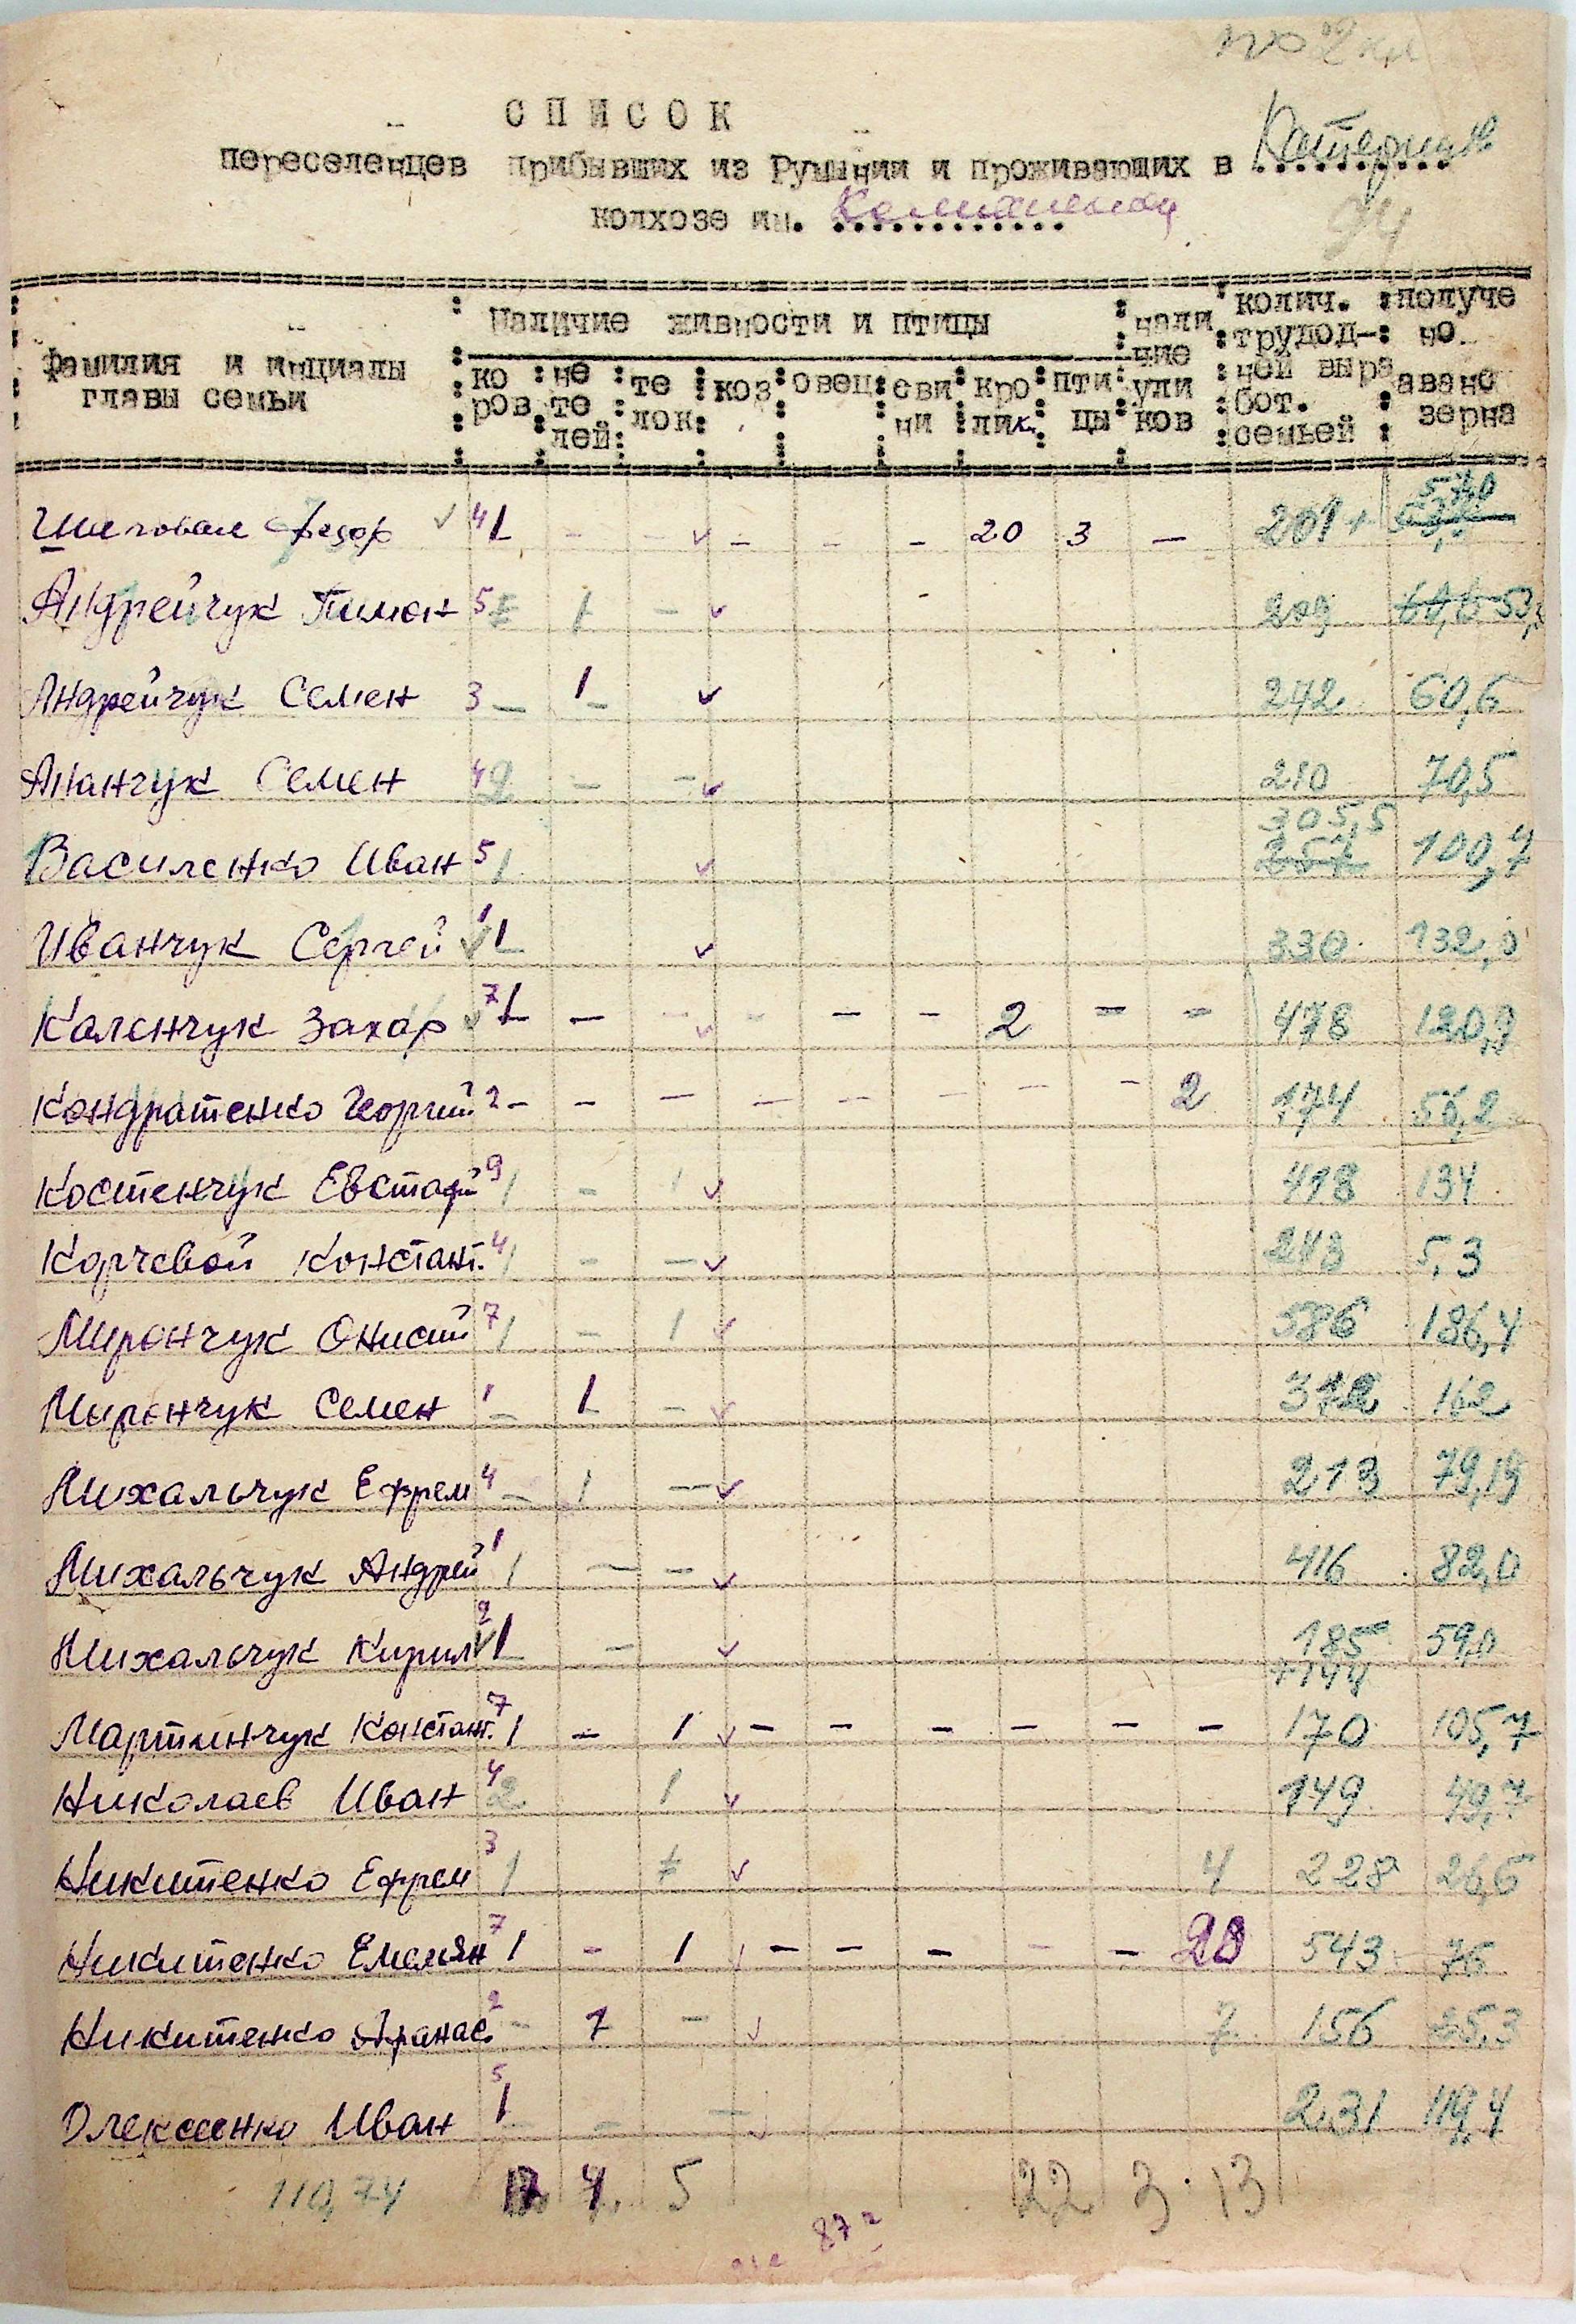 СПИСОК
переселенцев прибывших из Румынии и проживающих в ..........
колхозе им. ............
фамилия и инциалы главы семьи : Наличие живности и птицы : нали чие ули ков : колич. трудод- ней выра бот. семьей : получе но аванс зерна
ко ров : не те лей : те лок : коз : овец : сви ни : кро лик. : пти цы
Шиговал Федор 4 1 - - - - - 20 3 - 201+ 57,0
Андрейчук Тимон 5 1 - 209 60,6 53,
Андрейчук Семен 3 - 1 242 60,6
Апанчук Семен 4 2 - - 210 70,5
305,5
Василенко Иван 5 1 257 100,7
Иванчук Сергей 1 1 330 132,0
Каленчук Захар 7 1 - - - - - 2 - - 478 120,9
Кондратенко Георгий 2 - - - - - - - - 2 174 56,2
Костенчук Евстафий 9 1 - 1 418 134
Корчевой Констант. 4 1 - - 243 5,3
Мирончук Онисий 7 1 - 1 586 186,4
Мирончук Семен 1 - 1 - 372 162
Михальчук Ефрем 4 - 1 - 213 79,19
Михальчук Андрей 1 1 - - 416 82,0
Михальчук Кирил 2 1 - 185 59,0
+144
Мартинчук Констант. 7 1 - 1 - - - - - - 170 105,7
Николаев Иван 4 2 1 149 49,7
Никитенко Ефрем 3 1 4 228 26,6
Никитенко Емельян 7 1 - 1 - - - - - 20 543 76
Никитенко Афанас. 2 - 1 - 7 156 25,3
Олексеенко Иван 5 1 - - 231 119,4
110,74 4 5 22 3 13
87